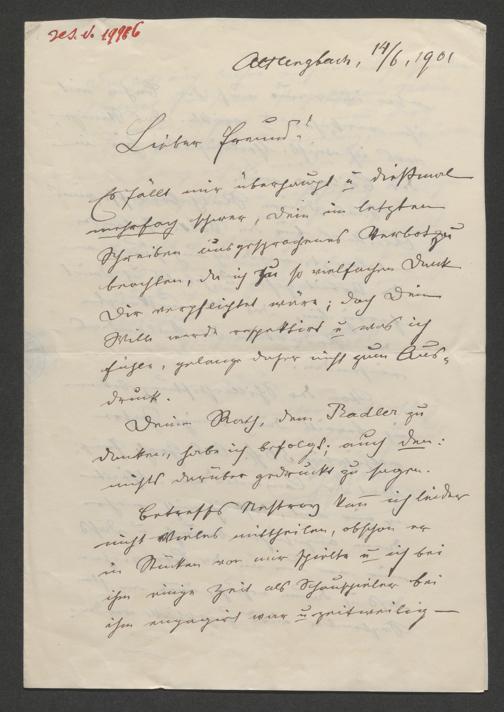 Altlengbach, 14/6, 1901
Lieber Freund!
Es fällt mir überhaupt u dießmal
mehrfach schwer, Dein im letzten
Schreiben ausgesprochenes Verbot zu
beachten, da ich zu so vielfachen Dank
Dir verpflichtet wäre; doch Dein
Wille werde respektirt u was ich
fühle, gelange daher nicht zum Aus-
druck.
Deinen Rath, dem Radler zu
danken, habe ich befolgt; auch den:
nichts darüber gedruckt zu sagen.
Betreffs Nestroy kann ich leider
nicht Vieles mittheilen, obschon er
in Stücken von mir spielte u ich bei
ihm einige Zeit als Schauspieler bei
ihm engagirt war u zeitweilig —